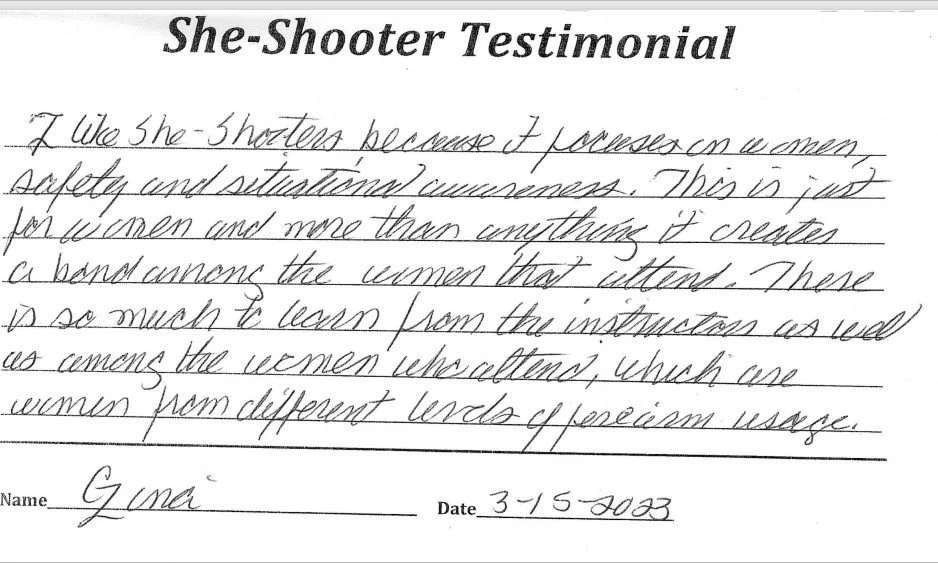 She-Shooter Testimonial
I like She-Shooters because it focuses on women,
safety and situational awareness. This is just
for women and more than anything it creates
a bond among the women that attend. There
is so much to learn from the instructors as well
as among the women who attend, which are
women from different levels of firearm usage.
Name Gina
Date 3-15-2023